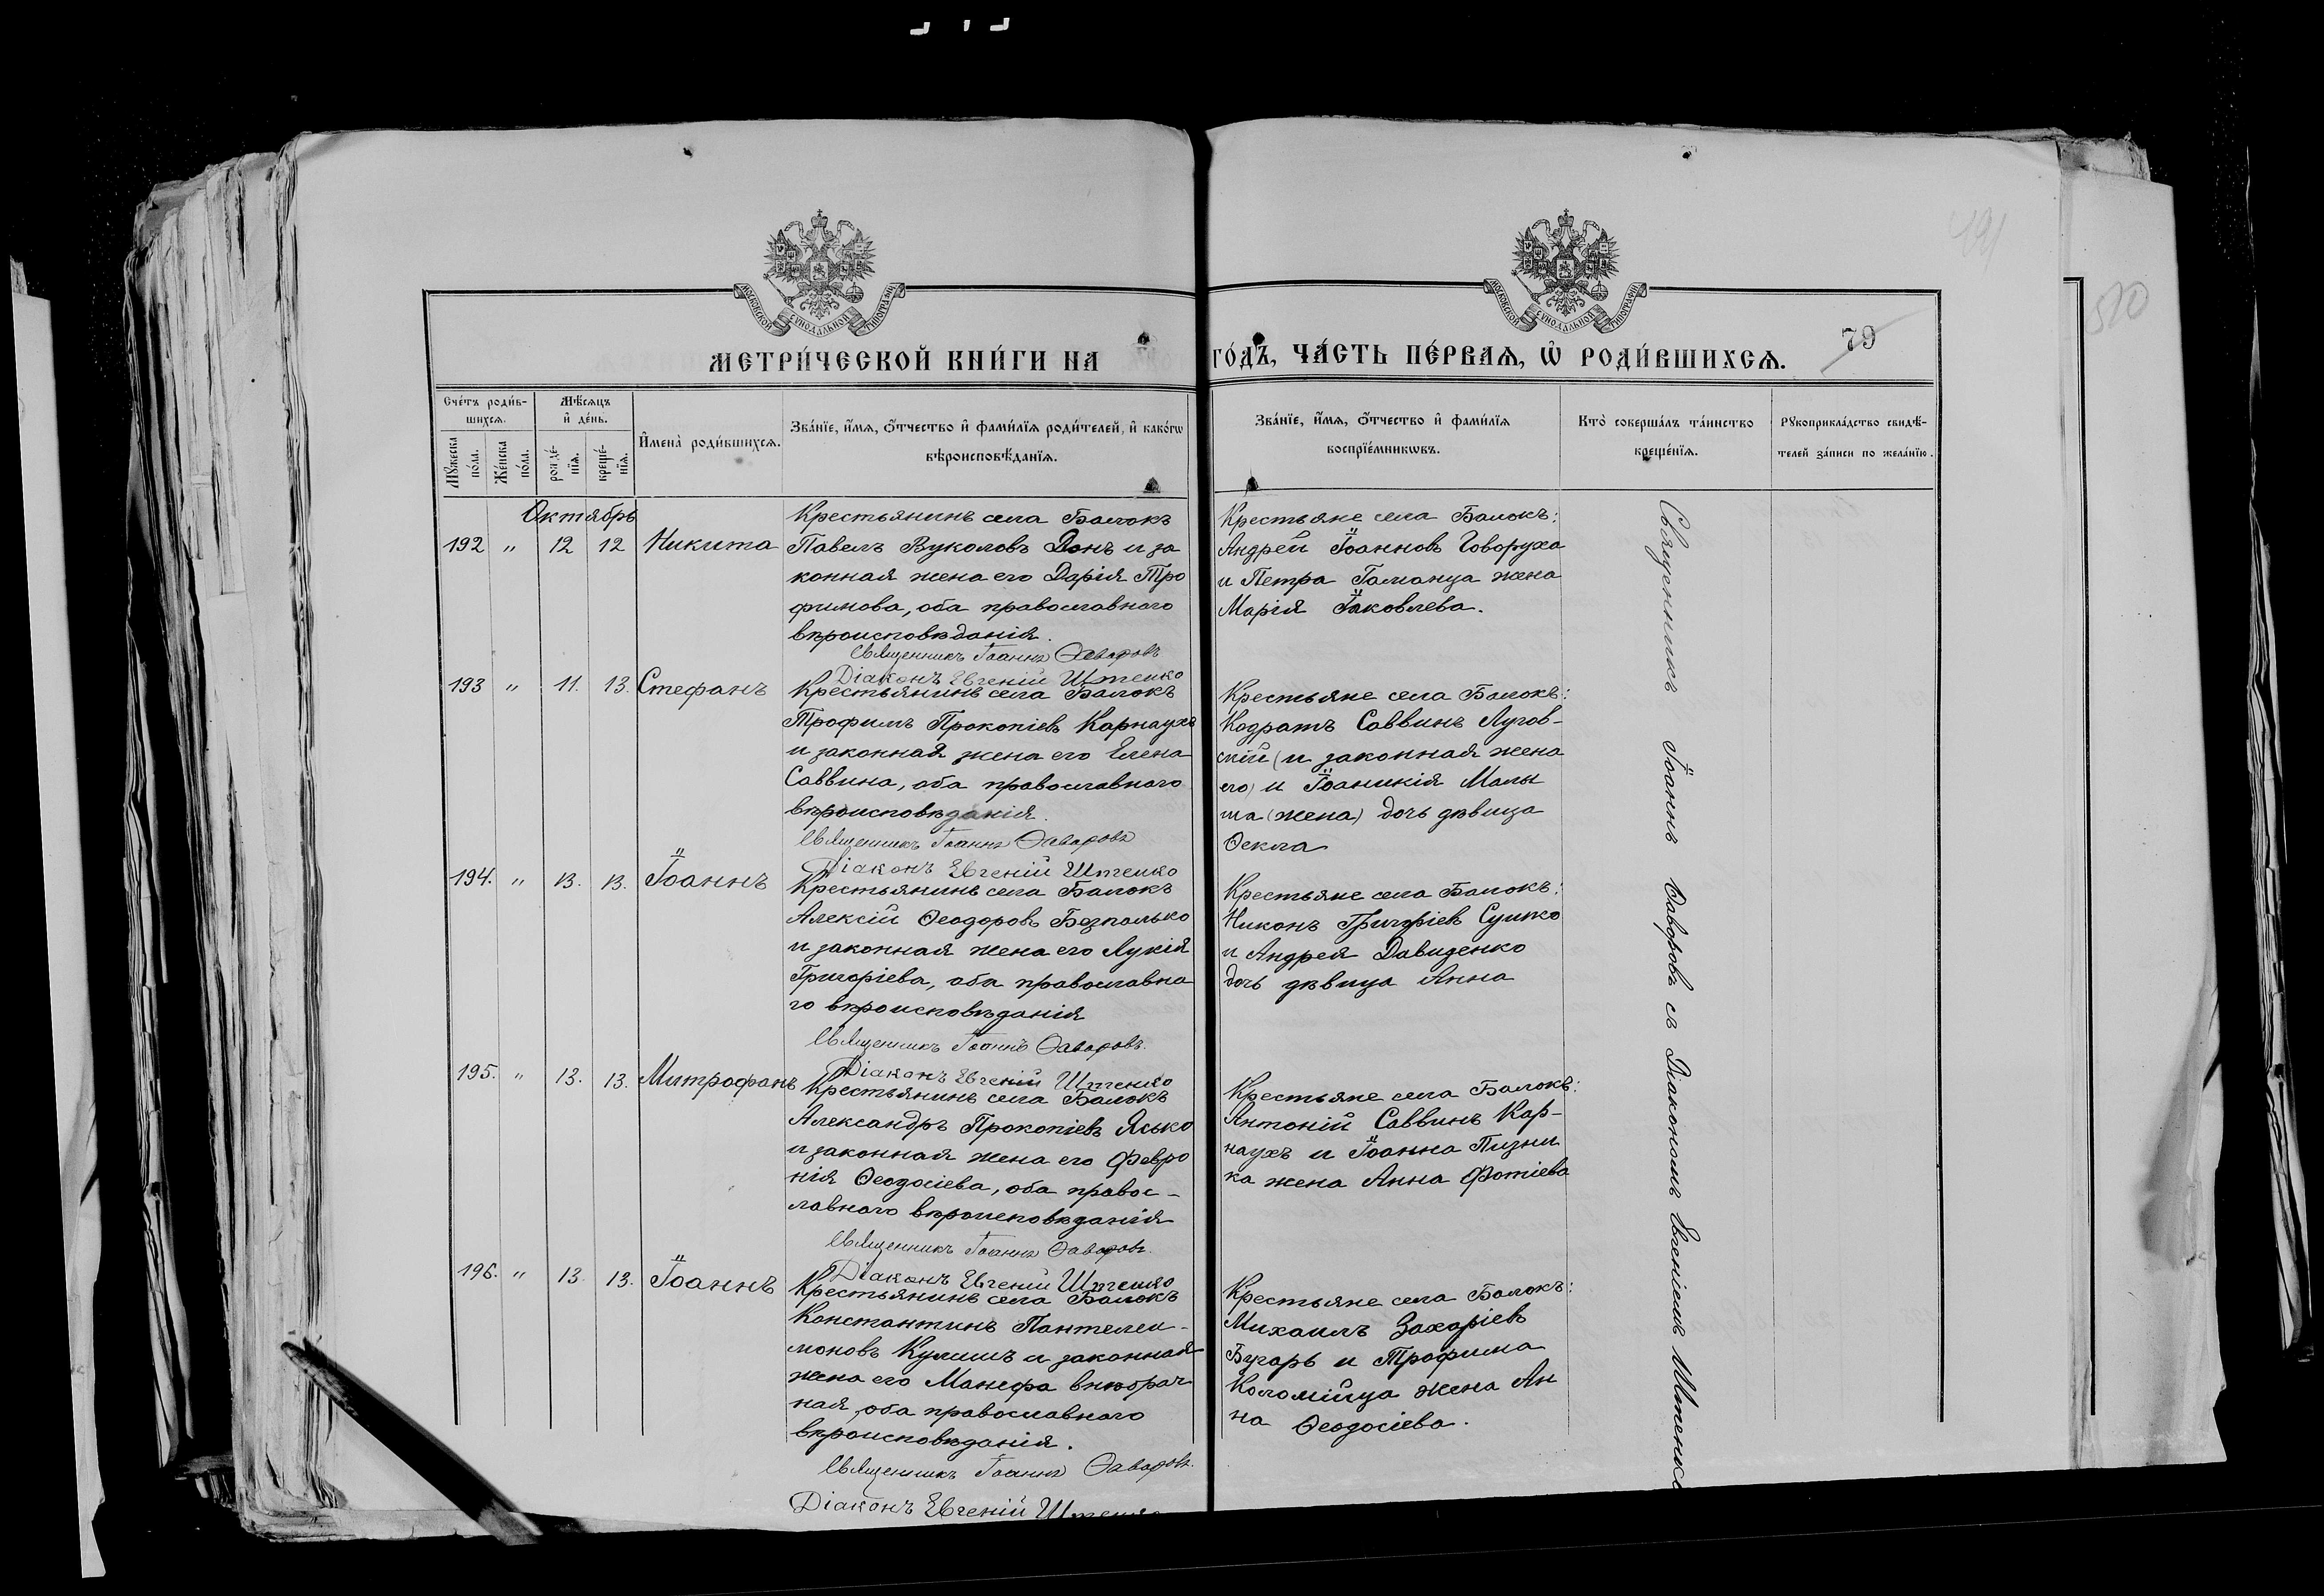 191
510
МОСКОВСКОЙ СѴНОДАЛЬНОЙ ТИПОГРАФІИ
МОСКОВСКОЙ СѴНОДАЛЬНОЙ ТИПОГРАФІИ
79
МЕТРИ́ЧЕСКОЙ КНИ́ГИ НА
ГО́ДЪ, ЧА́СТЬ ПЕ́РВАѦ, Ѡ҆ РОДИ́ВШИХСѦ.
Сче́тъ роди́в-
шихсѧ.
Мꙋ́жеска по́ла.
Же́нска по́ла.
Мѣ́сѧцъ
и҆ де́нь.
рожде́-
нїѧ.
креще́-
нїѧ.
И҆мена̀ роди́вшихсѧ.
Зва́нїе, и҆́мѧ, ѻ҆́тчество и҆ фами́лїѧ роди́телей, и҆ како́гѡ
вѣроисповѣ́данїѧ.
Зва́нїе, и҆́мѧ, ѻ҆́тчество и҆ фами́лїѧ
воспрїе́мникѡвъ.
Кто̀ соверша́лъ та́инство
креще́нїѧ.
Рꙋкоприкла́дство свидѣ́-
телей за́писи по жела́нїю.
Октябрь
192 " 12 12 Никита
Крестьянинъ села Балокъ
Павелъ Вуколовъ Донъ и за
конная жена его Дарія Тро
фимова, оба православнаго
вѣроисповѣданія.
Священникъ Іоаннъ Ѳаворовъ
Діаконъ Евгеній Штепко
Крестьяне села Балокъ:
Андрей Іоанновъ Говоруха
и Петра Гаманца жена
Марія Іаковлева.
193 " 11. 13. Стефанъ
Крестьянинъ села Балокъ
Трофимъ Прокопіевъ Карнаухъ
и законная жена его Елена
Саввина, оба православнаго
вѣроисповѣданія.
Священникъ Іоаннъ Ѳаворовъ
Діаконъ Евгеній Штепко
Крестьяне села Балокъ:
Кодратъ Саввинъ Лугов-
скій (и законная жена
его) и Іоаникія Малы
ша (жена) дочь дѣвица
Ѳекла
194. " 13. 13. Іоаннъ
Крестьянинъ села Балокъ
Алексій Ѳеодоровъ Безпалько
и законная жена его Лукія
Григоріева, оба православна
го вѣроисповѣданія
Священникъ Іоаннъ Ѳаворовъ.
Діаконъ Евгеній Штепко
Крестьяне села Балокъ:
Никонъ Григоріевъ Сушко
и Андрея Давиденко
дочь дѣвица Анна
195. " 13. 13. Митрофанъ
Крестьянинъ села Балокъ
Александръ Прокопіевъ Ясько
и законная жена его Февро
нія Ѳеодосіева, оба правос-
лавнаго вѣроисповѣданія
Священникъ Іоаннъ Ѳаворовъ.
Діаконъ Евгеній Штепко
Крестьяне села Балокъ:
Антоній Саввинъ Кар-
наухъ и Іоанна Пизни
ка жена Анна Фотіева
196. " 13. 13. Іоаннъ
Крестьянинъ села Балокъ
Константинъ Пантелеи-
моновъ Кулишъ и законная
жена его Манефа внѣбрач
ная, оба православнаго
вѣроисповѣданія.
Священникъ Іоаннъ Ѳаворовъ.
Діаконъ Евгеній Штепко
Крестьяне села Балокъ:
Михаилъ Захаріевъ
Бугарь и Трофима
Коломійца жена Ан
на Ѳеодосіева.
Священникъ Іоаннъ Ѳаворовъ съ Діакономъ Евгеніемъ Штепко